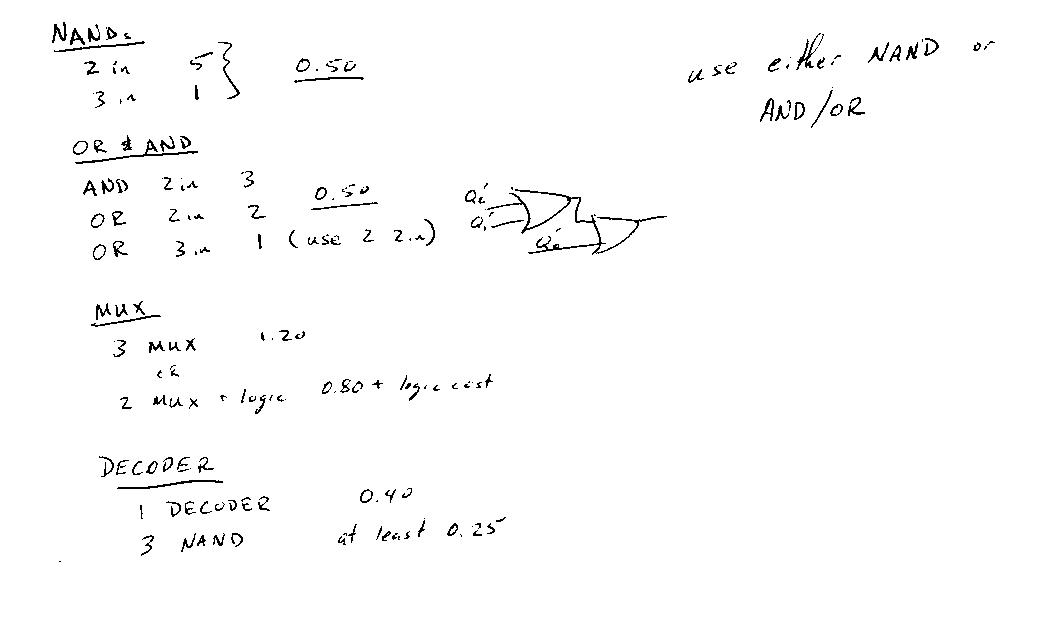 NANDs
2 in 5
3 in 1
0.50
use either NAND or
AND/OR
OR & AND
AND 2 in 3
0.50
OR 2 in 2
OR 3 in 1 (use 2 2in)
MUX
3 MUX 1.20
or
2 MUX + logic 0.80 + logic cost
DECODER
1 DECODER 0.40
3 NAND at least 0.25